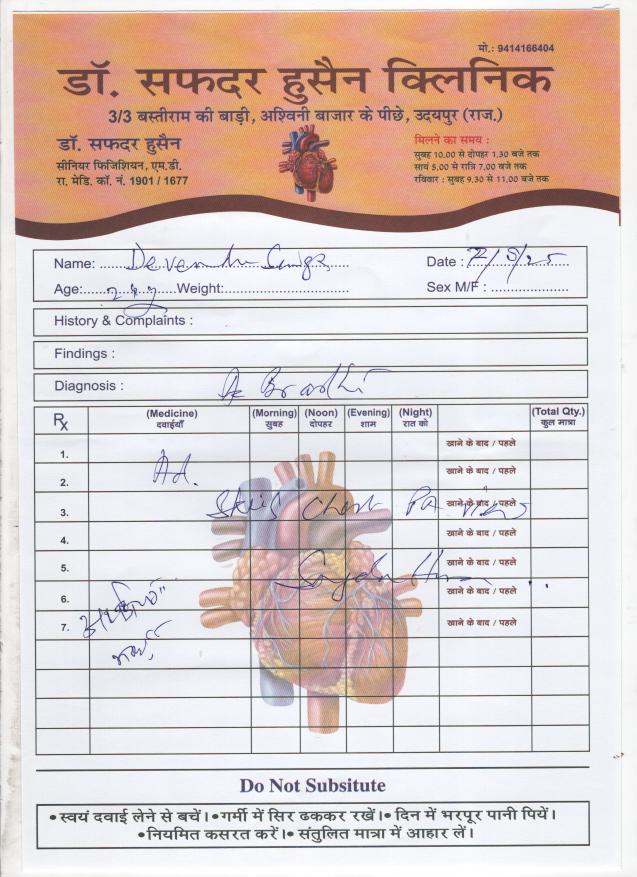 मो.: 9414166404
डॉ. सफदर हुसैन क्लिनिक
3/3 बस्तीराम की बाड़ी, अश्विनी बाजार के पीछे, उदयपुर (राज.)
डॉ. सफदर हुसैन
सीनियर फिजिशियन, एम.डी.
रा. मेडि. कॉ. नं. 1901 / 1677
मिलने का समय :
सुबह 10.00 से दोपहर 1.30 बजे तक
सायं 5.00 से रात्रि 7.00 बजे तक
रविवार : सुबह 9.30 से 11.00 बजे तक
Name: Devendra Date :
Age: Weight: Sex M/F :
History & Complaints :
Findings :
Diagnosis :
Rx (Medicine) (Morning) (Noon) (Evening) (Night) (Total Qty.)
दवाईयाँ सुबह दोपहर शाम रात को कुल मात्रा
1. खाने के बाद / पहले
2. खाने के बाद / पहले
3. Chest PA खाने के बाद / पहले
4. खाने के बाद / पहले
5. खाने के बाद / पहले
6. खाने के बाद / पहले
7. खाने के बाद / पहले
Do Not Subsitute
•स्वयं दवाई लेने से बचें।•गर्मी में सिर ढककर रखें।•दिन में भरपूर पानी पियें।
•नियमित कसरत करें।•संतुलित मात्रा में आहार लें।